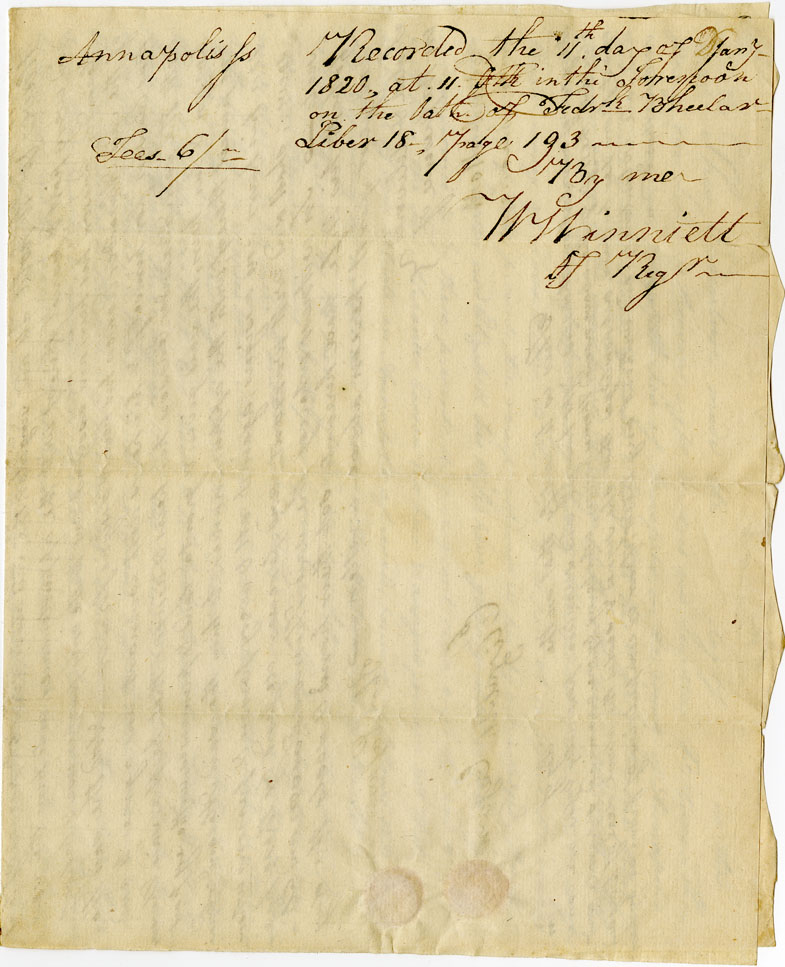 Annapolis Ss
Recorded the 11th day of Jany
1820, at 11 in the forenoon
on the Oath of Fredrk Wheelar
Liber 18, Page 193
Fees 6/
By me
W Winniett
Regr